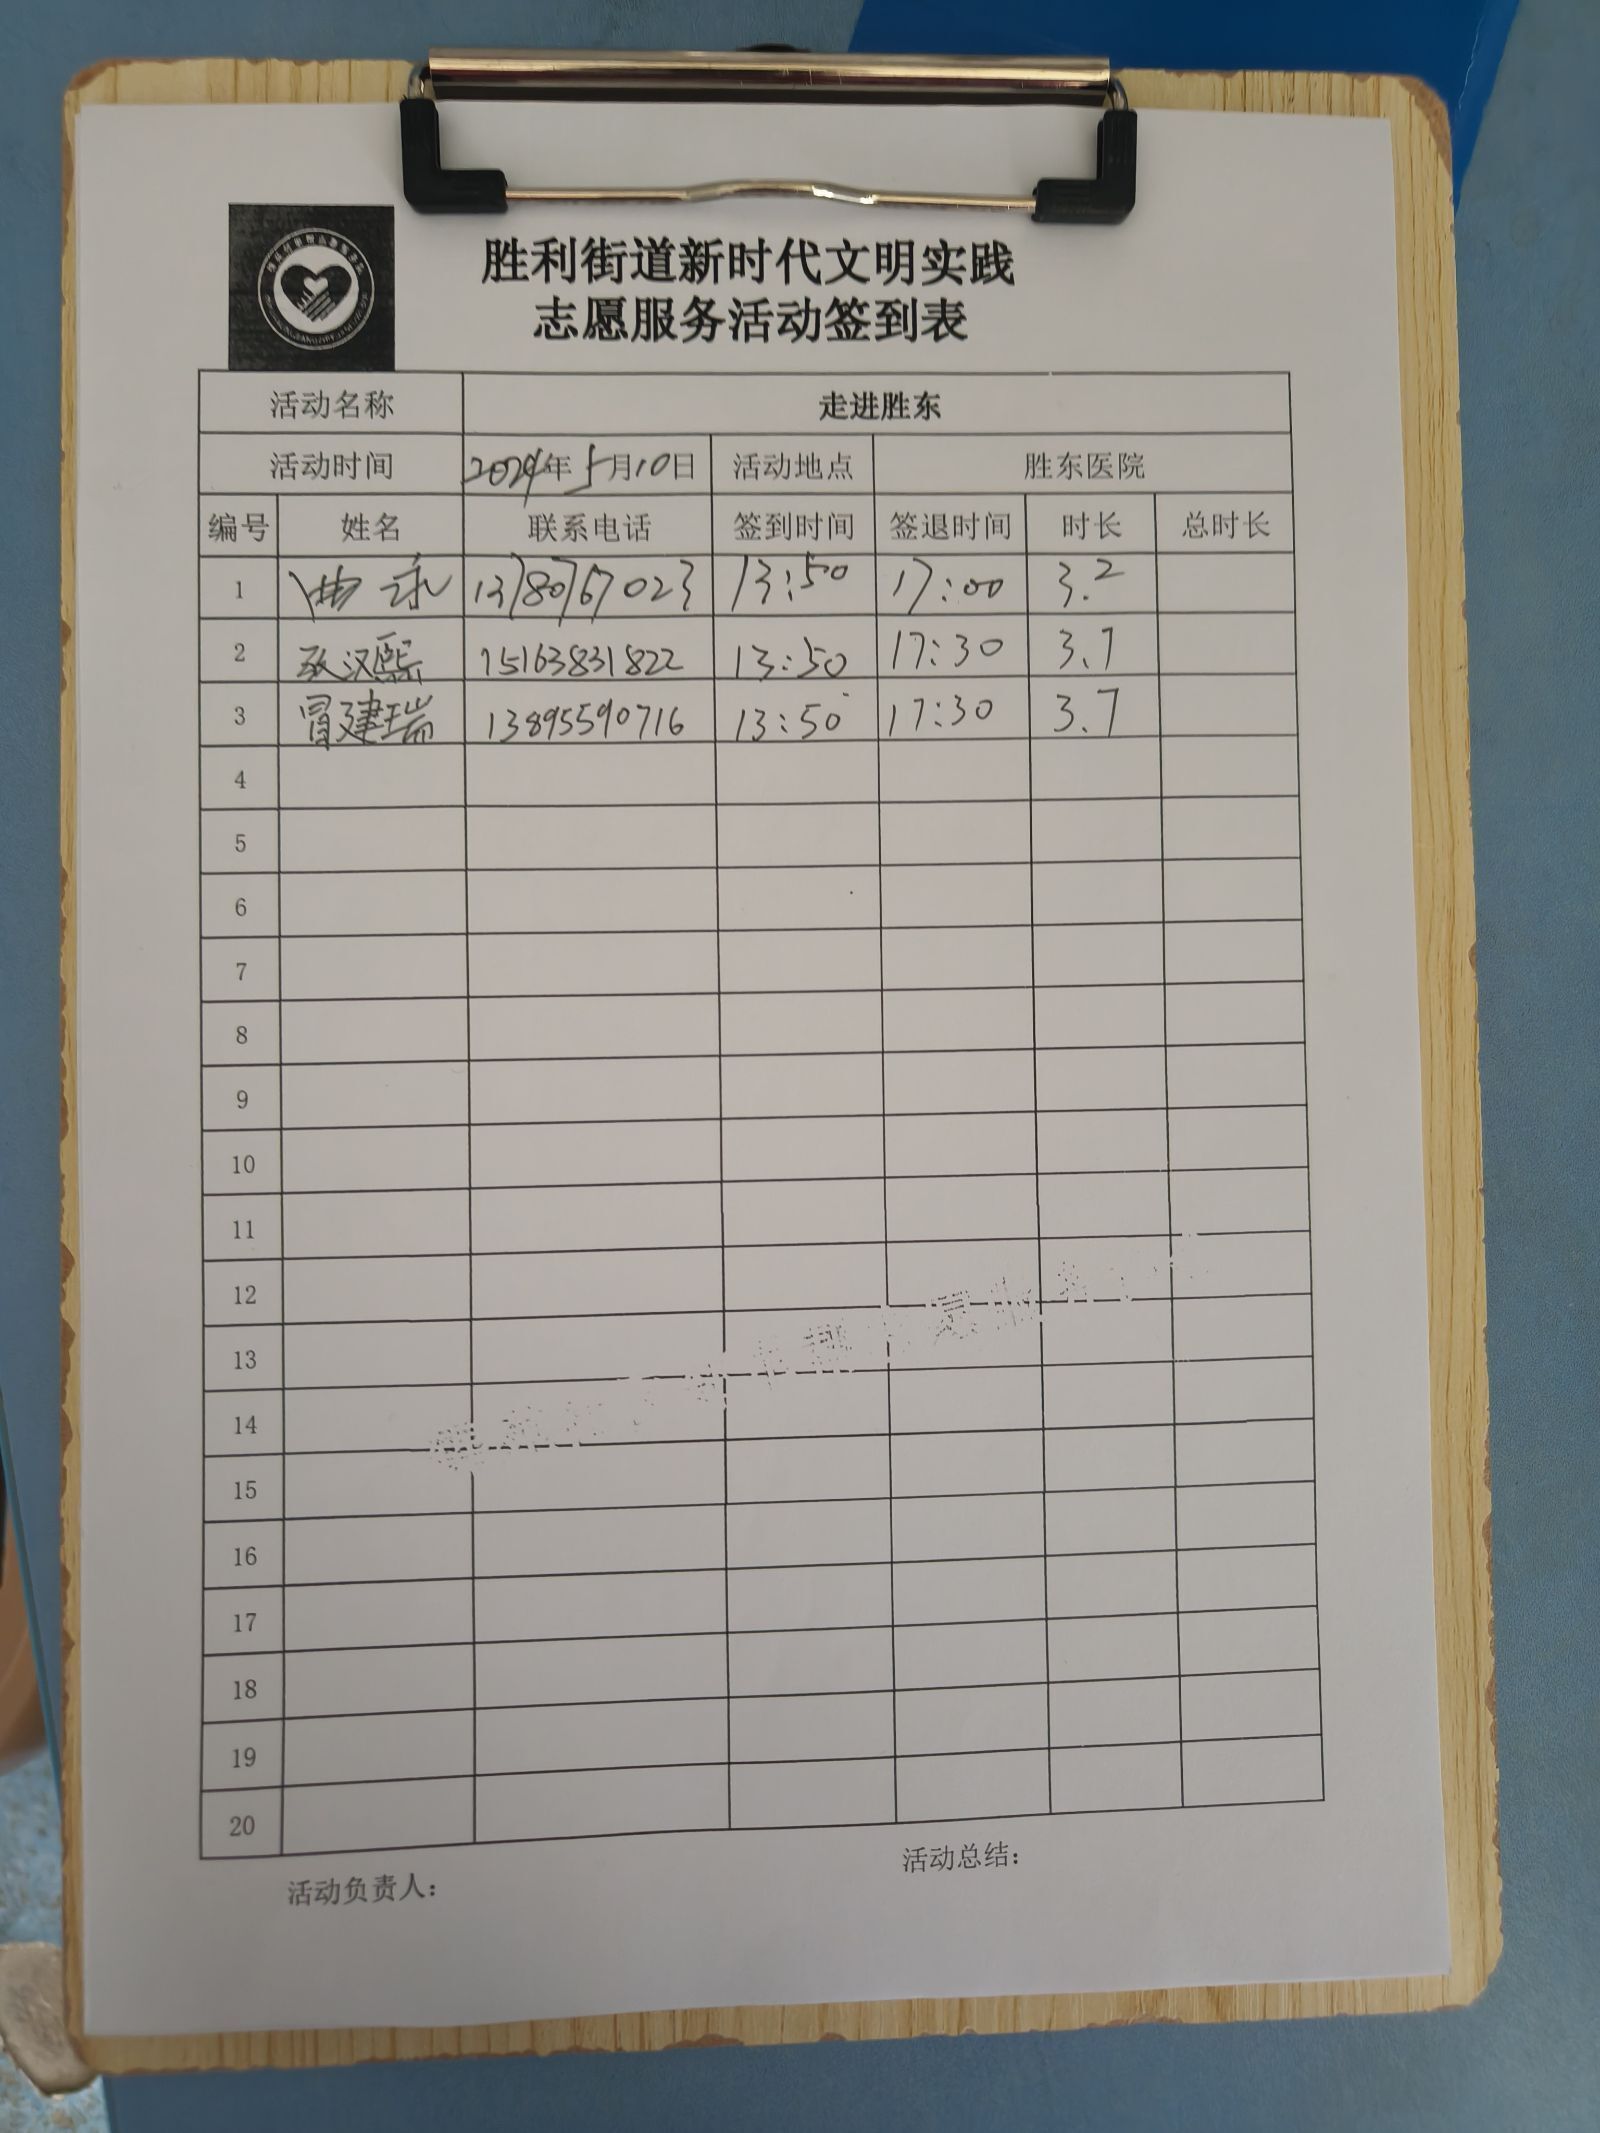 胜利街道新时代文明实践
志愿服务活动签到表
活动名称 走进胜东
活动时间 2024年5月10日 活动地点 胜东医院
编号 姓名 联系电话 签到时间 签退时间 时长 总时长
1 曲 13780767023 13:50 17:00 3.2
2 汉熙 15163831822 13:50 17:30 3.7
3 冒建瑞 13895590716 13:50 17:30 3.7
4
5
6
7
8
9
10
11
12
13
14
15
16
17
18
19
20
活动负责人： 活动总结：